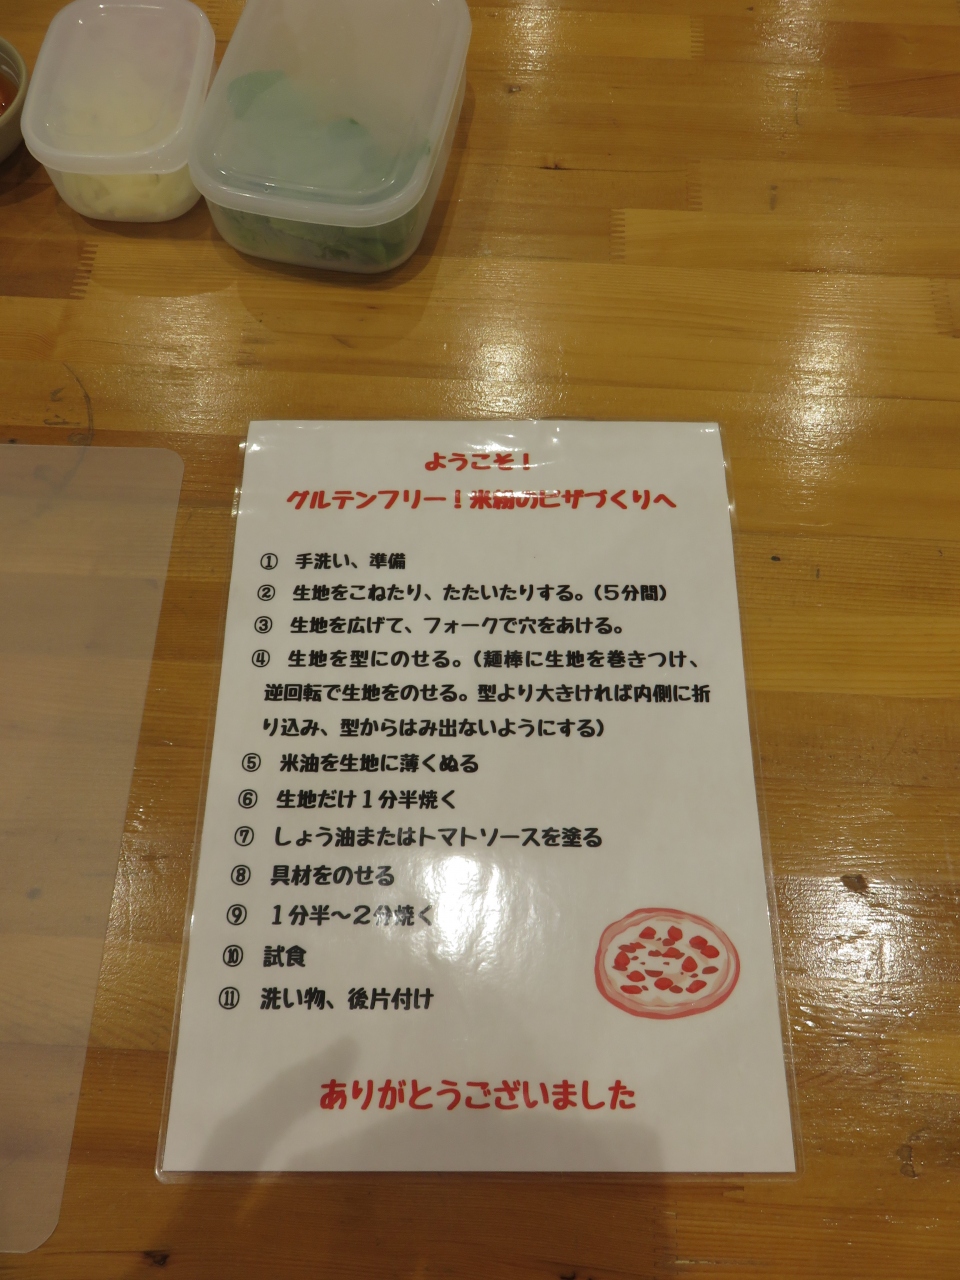 ようこそ！
グルテンフリー！米粉のピザづくりへ
① 手洗い、準備
② 生地をこねたり、たたいたりする。（５分間）
③ 生地を広げて、フォークで穴をあける。
④ 生地を型にのせる。（麺棒に生地を巻きつけ、
逆回転で生地をのせる。型より大きければ内側に折
り込み、型からはみ出ないようにする）
⑤ 米油を生地に薄くぬる
⑥ 生地だけ１分半焼く
⑦ しょう油またはトマトソースを塗る
⑧ 具材をのせる
⑨ １分半～２分焼く
⑩ 試食
⑪ 洗い物、後片付け
ありがとうございました